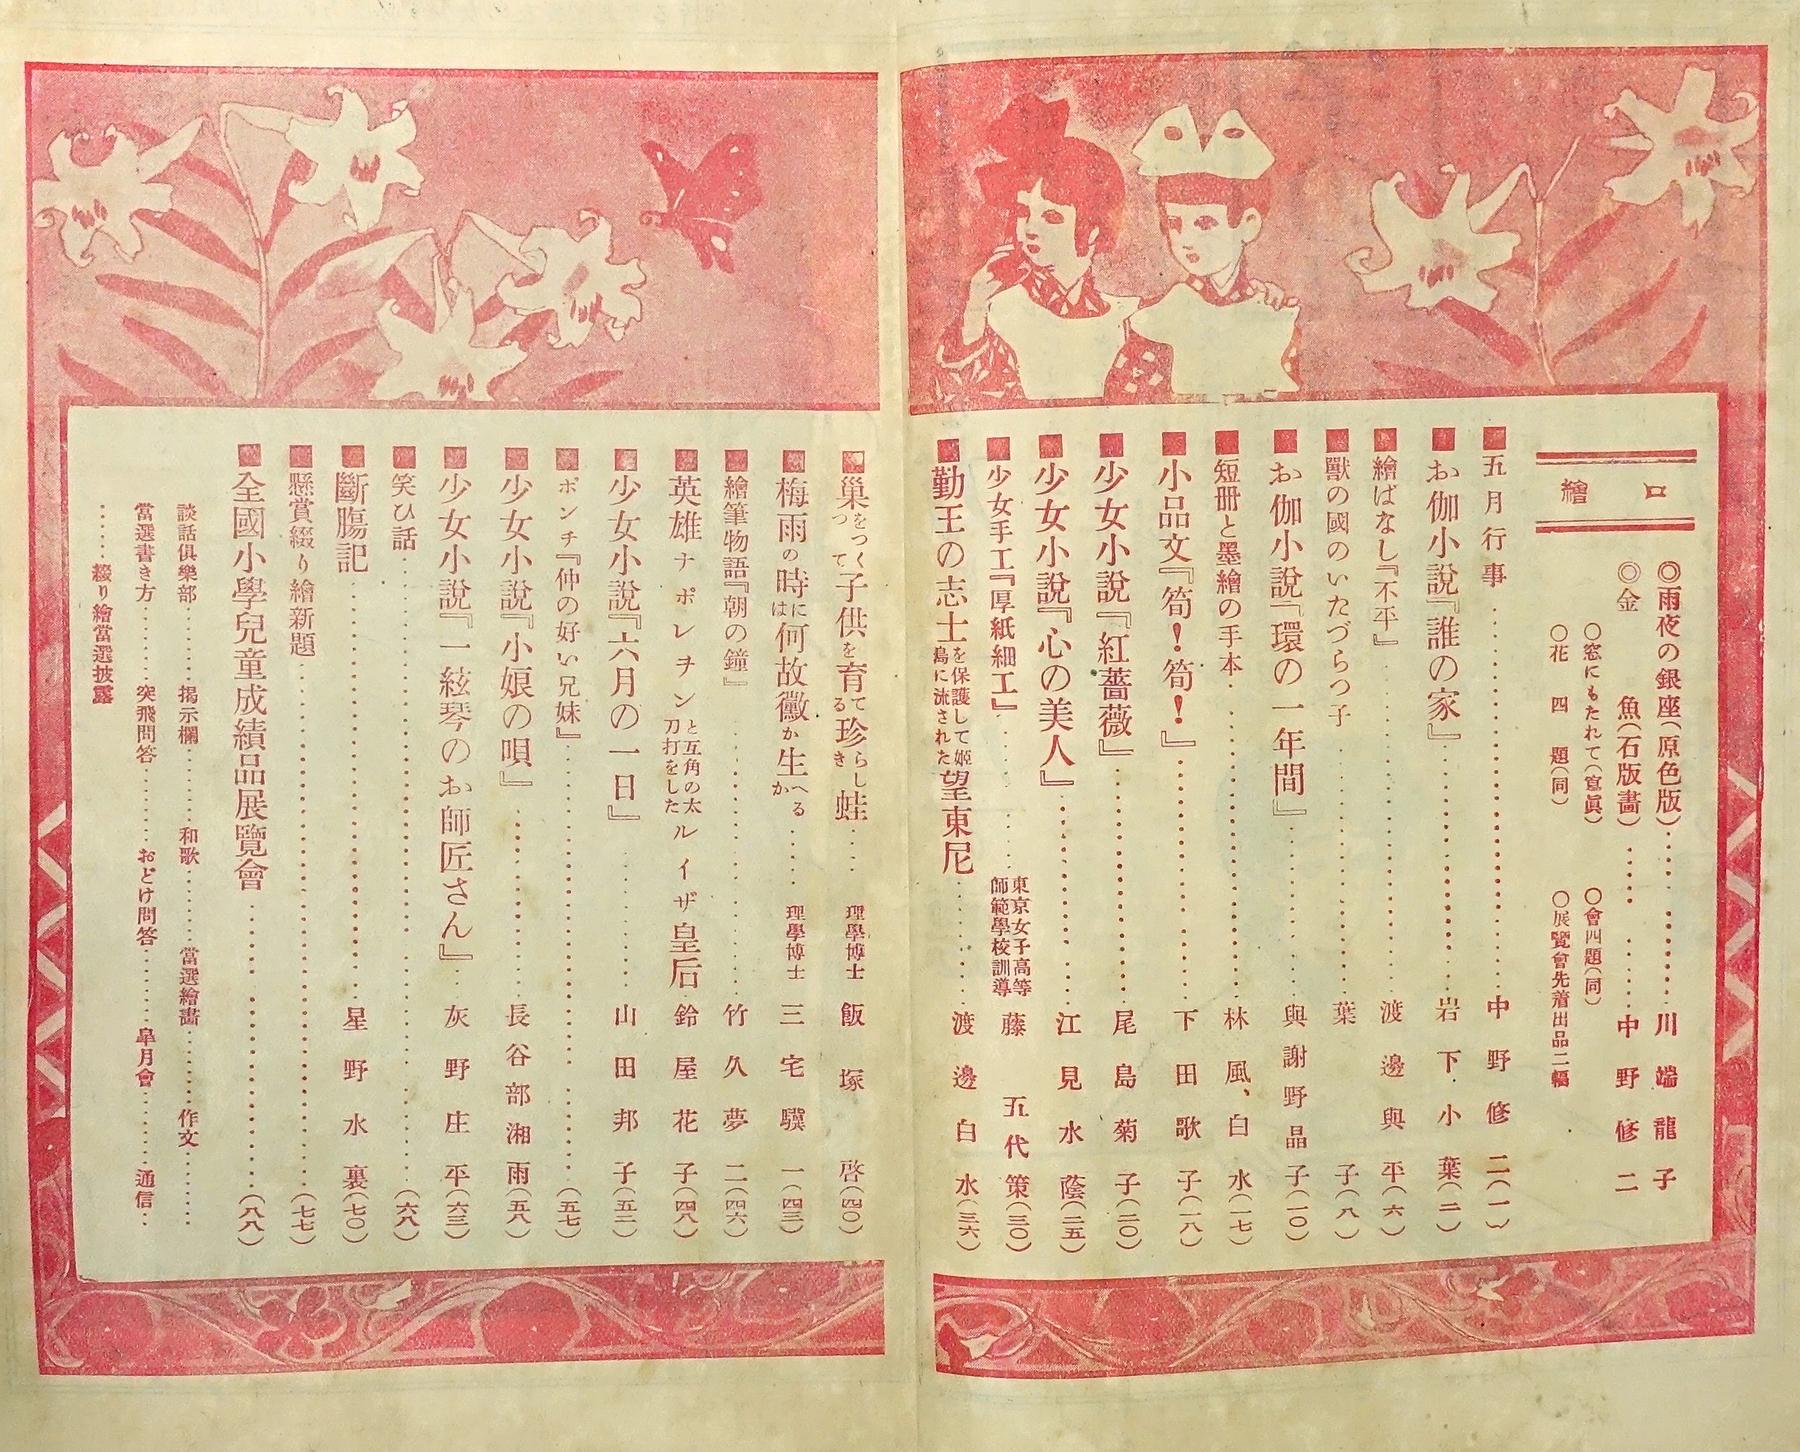 口繪
◎雨夜の銀座(原色版)‥‥‥‥川端龍子
◎金魚(石版畵)‥‥‥‥中野修二
〇窓にもたれて(寫眞) 〇會四題(同)
〇花四題(同) 〇展覽會先着出品二幅
■五月行事‥‥‥‥中野修二(一)
■お伽小說『誰の家』‥‥‥‥岩下小葉(二)
■繪ばなし『不平』‥‥‥‥渡邊與平(六)
■獸の國のいたづらつ子‥‥‥‥葉子(八)
■お伽小說『環の一年間』‥‥‥‥與謝野晶子(一〇)
■短册と墨繪の手本‥‥‥‥林風、白水(一七)
■小品文『筍!筍!』‥‥‥‥下田歌子(一八)
■少女小說『紅薔薇』‥‥‥‥尾島菊子(二〇)
■少女小說『心の美人』‥‥‥‥江見水蔭(二五)
■少女手工『厚紙細工』‥‥‥‥東京女子高等師範學校訓導 藤五代策(三〇)
■勤王の志士を保護して姬島に流された望東尼‥‥‥‥渡邊白水(三六)
■巢をつくつて子供を育てる珍らしき蛙‥‥‥‥理學博士 飯塚啓(四〇)
■梅雨の時には何故黴か生へるか‥‥‥‥理學博士 三宅驥一(四三)
■繪筆物語『朝の鐘』‥‥‥‥竹久夢二(四六)
■英雄ナポレヲンと互角の太刀打をしたルイザ皇后 鈴屋花子(四八)
■少女小說『六月の一日』‥‥‥‥山田邦子(五二)
■ポンチ『仲の好い兄妹』‥‥‥‥(五七)
■少女小說『小娘の唄』‥‥‥‥長谷部湘雨(五八)
■少女小說『一絃琴のお師匠さん』‥‥灰野庄平(六三)
■笑ひ話‥‥‥‥(六八)
■斷膓記‥‥‥‥星野水裏(七〇)
■懸賞綴り繪新題‥‥‥‥(七七)
■全國小學兒童成績品展覽會‥‥‥‥(八八)
談話俱樂部‥‥‥‥揭示欄‥‥‥‥和歌‥‥‥‥當選繪畵‥‥‥‥作文‥‥‥‥
當選書き方‥‥‥‥突飛問答‥‥‥‥おどけ問答‥‥‥‥皐月會‥‥‥‥通信‥‥
‥‥‥綴り繪當選披露